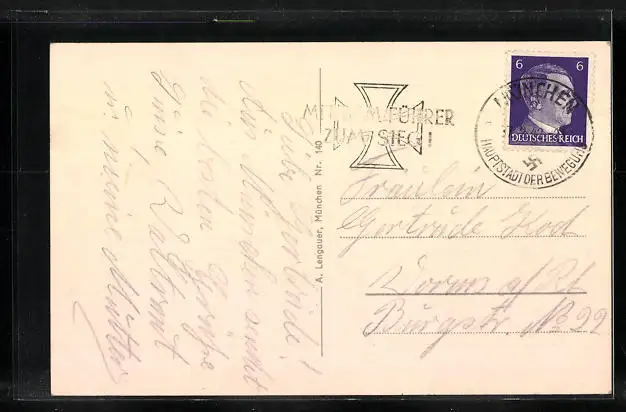 Liebe Gertrude!
Aus München sendet
die besten Grüsse
Deine Waltraut
u. meine Mutter
A. Lengauer, München Nr. 140
MIT DEM FÜHRER
ZUM SIEG
MÜNCHEN
HAUPTSTADT DER BEWEGUNG
6 6
DEUTSCHES REICH
Fräulein
Gertrude Kod
Worms a/Rh
Burgstr. No 22